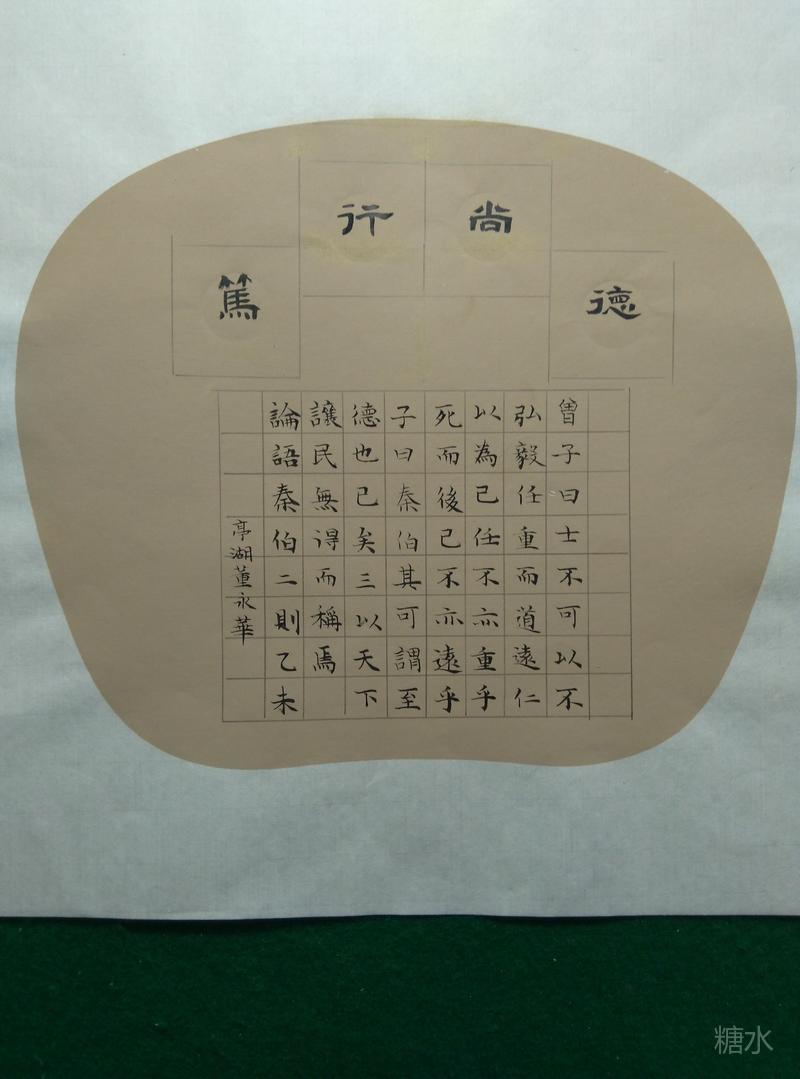 德尚行篤
曾子曰士不可以不
弘毅任重而道遠仁
以為己任不亦重乎
死而後已不亦遠乎
子曰秦伯其可謂至
德也已矣三以天下
讓民無得而稱焉
論語秦伯二則乙未
亭湖董永華
糖水